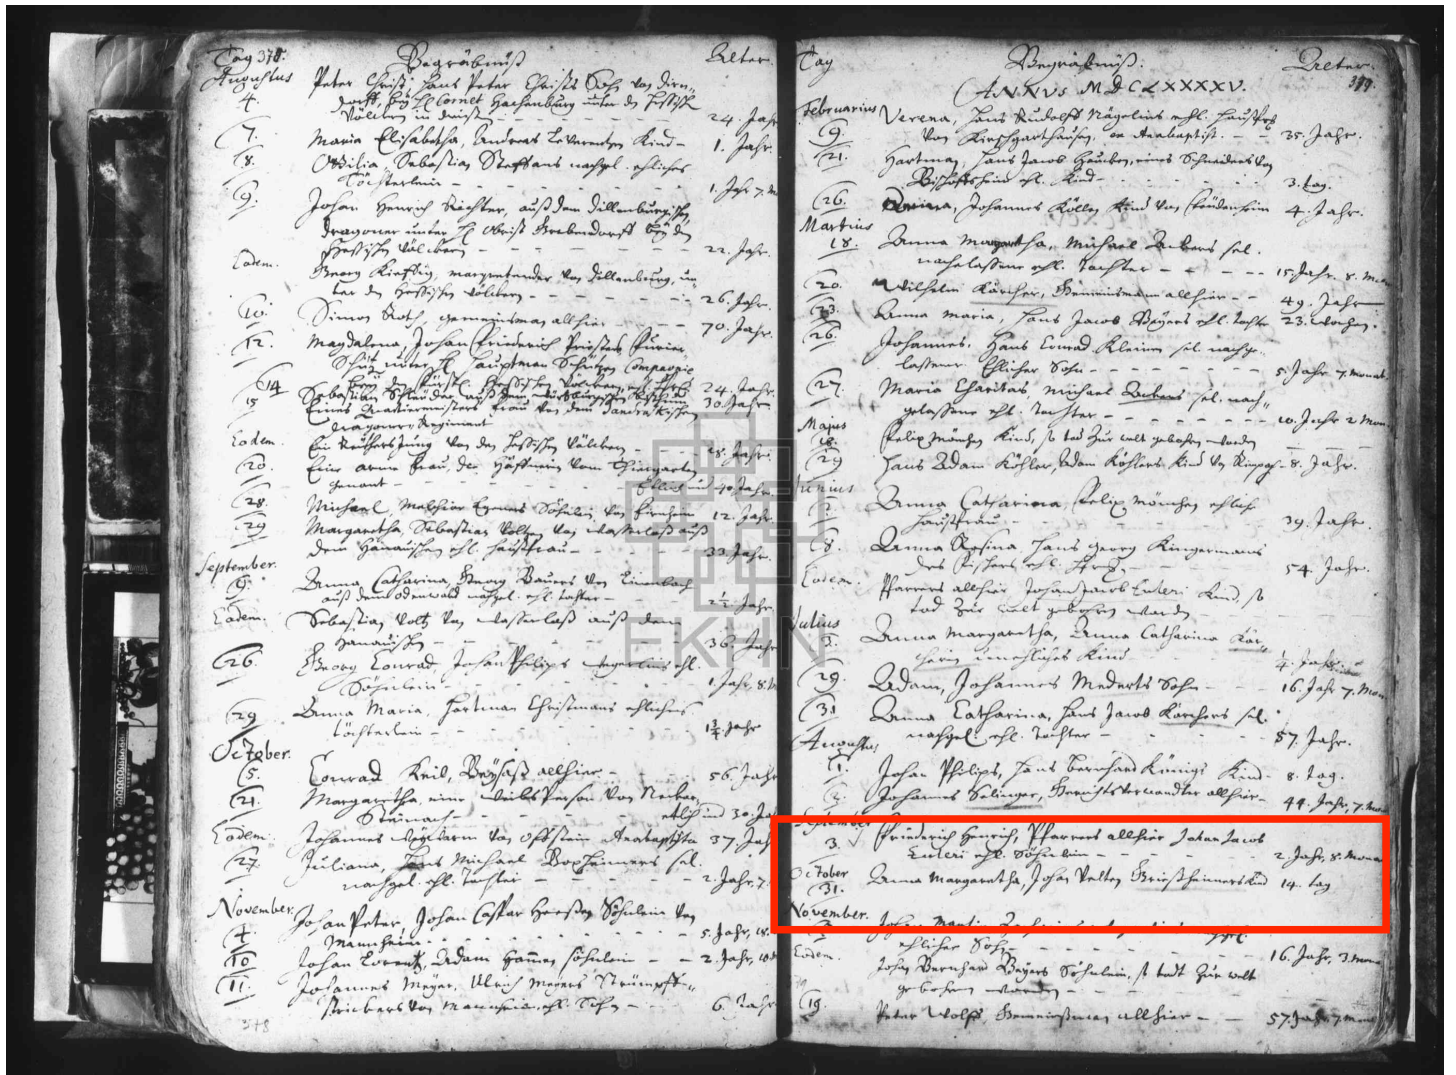 Tag 378. Begräbnuß Alter.
Augustus Peter Christ, Hans Peter Christs Sohn von
4. Cornet Hachenburg unter den Hessischen
Völckern in 24. Jahr
7. Maria Elisabetha, Andreas Kind 1. Jahr.
8. Ottilia Sebastian Steffans nachgel. ehliches
Töchterlein 1. Jahr 7. M
9. Johan Henrich Richter, auß dem Dillenburgischen
dragoner unter Obrist
Hessischen Völckern 22. Jahr.
Eodem. Georg von Dillenburg, un-
ter den Hessischen Völckern 26. Jahr.
10. Simon Roth, gemeinsman allhier 70. Jahr.
12. Magdalena, Johan Friederich
unter Hauptman Compagnie
Hessischen Völckern, ehl. 24. Jahr.
14 Sebastian auß dem 30. Jahr
15 Eines Quartiermeisters frau von dem
dragoner Regiment
Eodem. Ein von den Hessischen Völckern 18. Jahr.
20. Eine arme frau, die vom Thiergarten
genant Etlich und 40 Jahr.
28. Michael, Melchior Söhnlein von 12. Jahr
29 Margaretha, Sebastian Voltz von Wasserloß auß
dem Hanauischen ehl. haußfrau 33 Jahr.
September.
9. Anna Catharina, Georg Bauers von
auß dem Odenwald nachgel. ehl. tochter 2½ Jahr.
Eodem. Sebastian Voltz von Wasserloß auß dem
Hanauischen 36. Jahr
26. Georg Conrad, Johan Philips ehl.
Söhnlein 1. Jahr, 8. M
29 Anna Maria, Hartman Christmans ehliches
töchterlein 1¾ Jahr
October.
5. Conrad Keil, Beysaß allhier 56. Jahr
21. Margaretha, eine Weibs Person von Neckar
Steinach etlich und 30. Ja
Eodem. Johannes von Offstein Anabaptista 37. Jah
27. Juliana, Hans Michael sel.
nachgel. ehl. Tochter 2. Jahr, 7.
November.
4. Johan Peter, Johan Caspar Söhnlein von
Mannheim 5. Jahr, 18.
10 Johan Lorentz, Adam söhnlein 2. Jahr, 10
11. Johannes Meyer, Ulrich Meyers Strümpff-
strickers von Mannheim ehl. Sohn 6. Jahr
378
Tag Begräbnuß. Alter.
379.
ANNUS MDCLXXXXV.
Februarius
9. Verena, Hans Rudolff Nägelins ehl. haußfr.
von Kirschgarthausen, Anabaptist. 35. Jahr.
21. Hartman, Hans Jacob eines Schneiders von
Bischoffsheim ehl. Kind 3. tag.
26. Johannes Köllen Kind von Feudenheim 4. Jahr.
Martius
18. Anna Margretha, Michael sel.
nachgelassene ehl. tochter 15. Jahr. 8. Mon
20. Wilhelm Kärcher, Gemeinsman allhier 49. Jahr
23. Anna Maria, Hans Jacob Beyers ehl. tochter 23. wochen.
26. Johannes, Hans Conrad Kleinen sel. nachge-
lassener Ehlicher Sohn 5. Jahr 7. monat
27. Maria Charitas, Michael sel. nach-
gelassene ehl. tochter 10. Jahr 2 Mon.
Majus
18. Felix Mönchen Kind, so tod zur welt gebohren worden
29 Hans Adam Köhler, Adam Köhlers Kind 8. Jahr.
Junius
Anna Catharina, Felix Mönchen ehliche
haußfrau 39. Jahr.
8. Anna Rosina, Hans Georg Kingermans
des Fischers ehl. 54. Jahr.
Eodem. Pfarrers allhier Johan Jacob Euleri Kind, so
tod zur welt gebohren worden
Julius
5. Anna Margaretha, Anna Catharina Kär-
cherin unehliches Kind ¼ Jahr
29. Adam, Johannes Mederts Sohn 16. Jahr 7. Mon
31 Anna Catharina, Hans Jacob Kärchers sel.
nachgel. ehl. Tochter 57. Jahr.
Augustus
1. Johan Philips, Hans Bernhard Königs Kind 8. tag.
2. Johannes Selinger, Gerichtsverwandter allhier 44. Jahr, 7. Mon
September
3. Friederich Henrich, Pfarrers allhier Johan Jacob
Euleri ehl. Söhnlein 2. Jahr, 8. Mona
October
31. Anna Margaretha, Johan Velten Grießheimers Kind 14. tag
November.
Johan Martin
ehlicher Sohn 16. Jahr, 3. Mona
Eodem. Johan Bernhard Beyers Söhnlein, so todt zur welt
gebohren worden
19. Peter Wolff, Gemeinßman allhier 57. Jahr, 7. Mon
EKHN